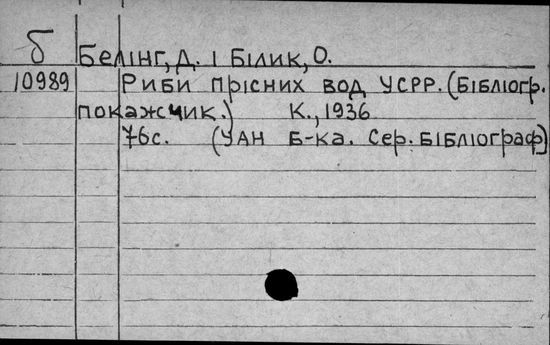 б Белінг, Д. і Білик, О.
10989 Риби прісних вод УСРР. (Бібліогр.
покажсчик.) К., 1936
76с. (УАН Б-ка. Сер. Бібліограф)